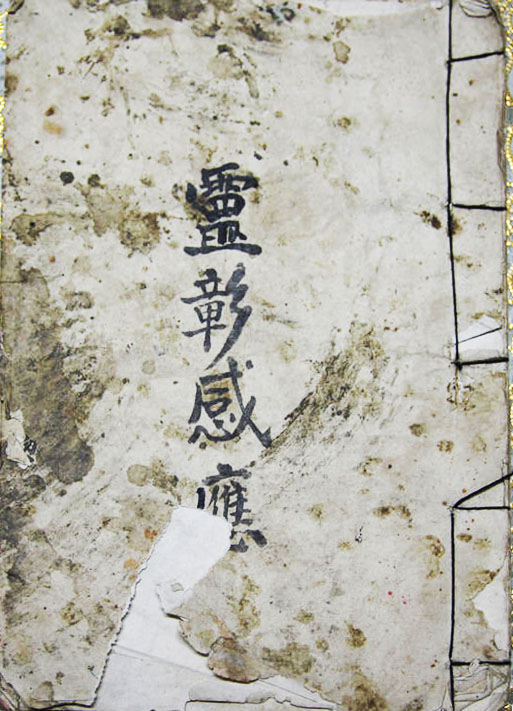 靈彰感應